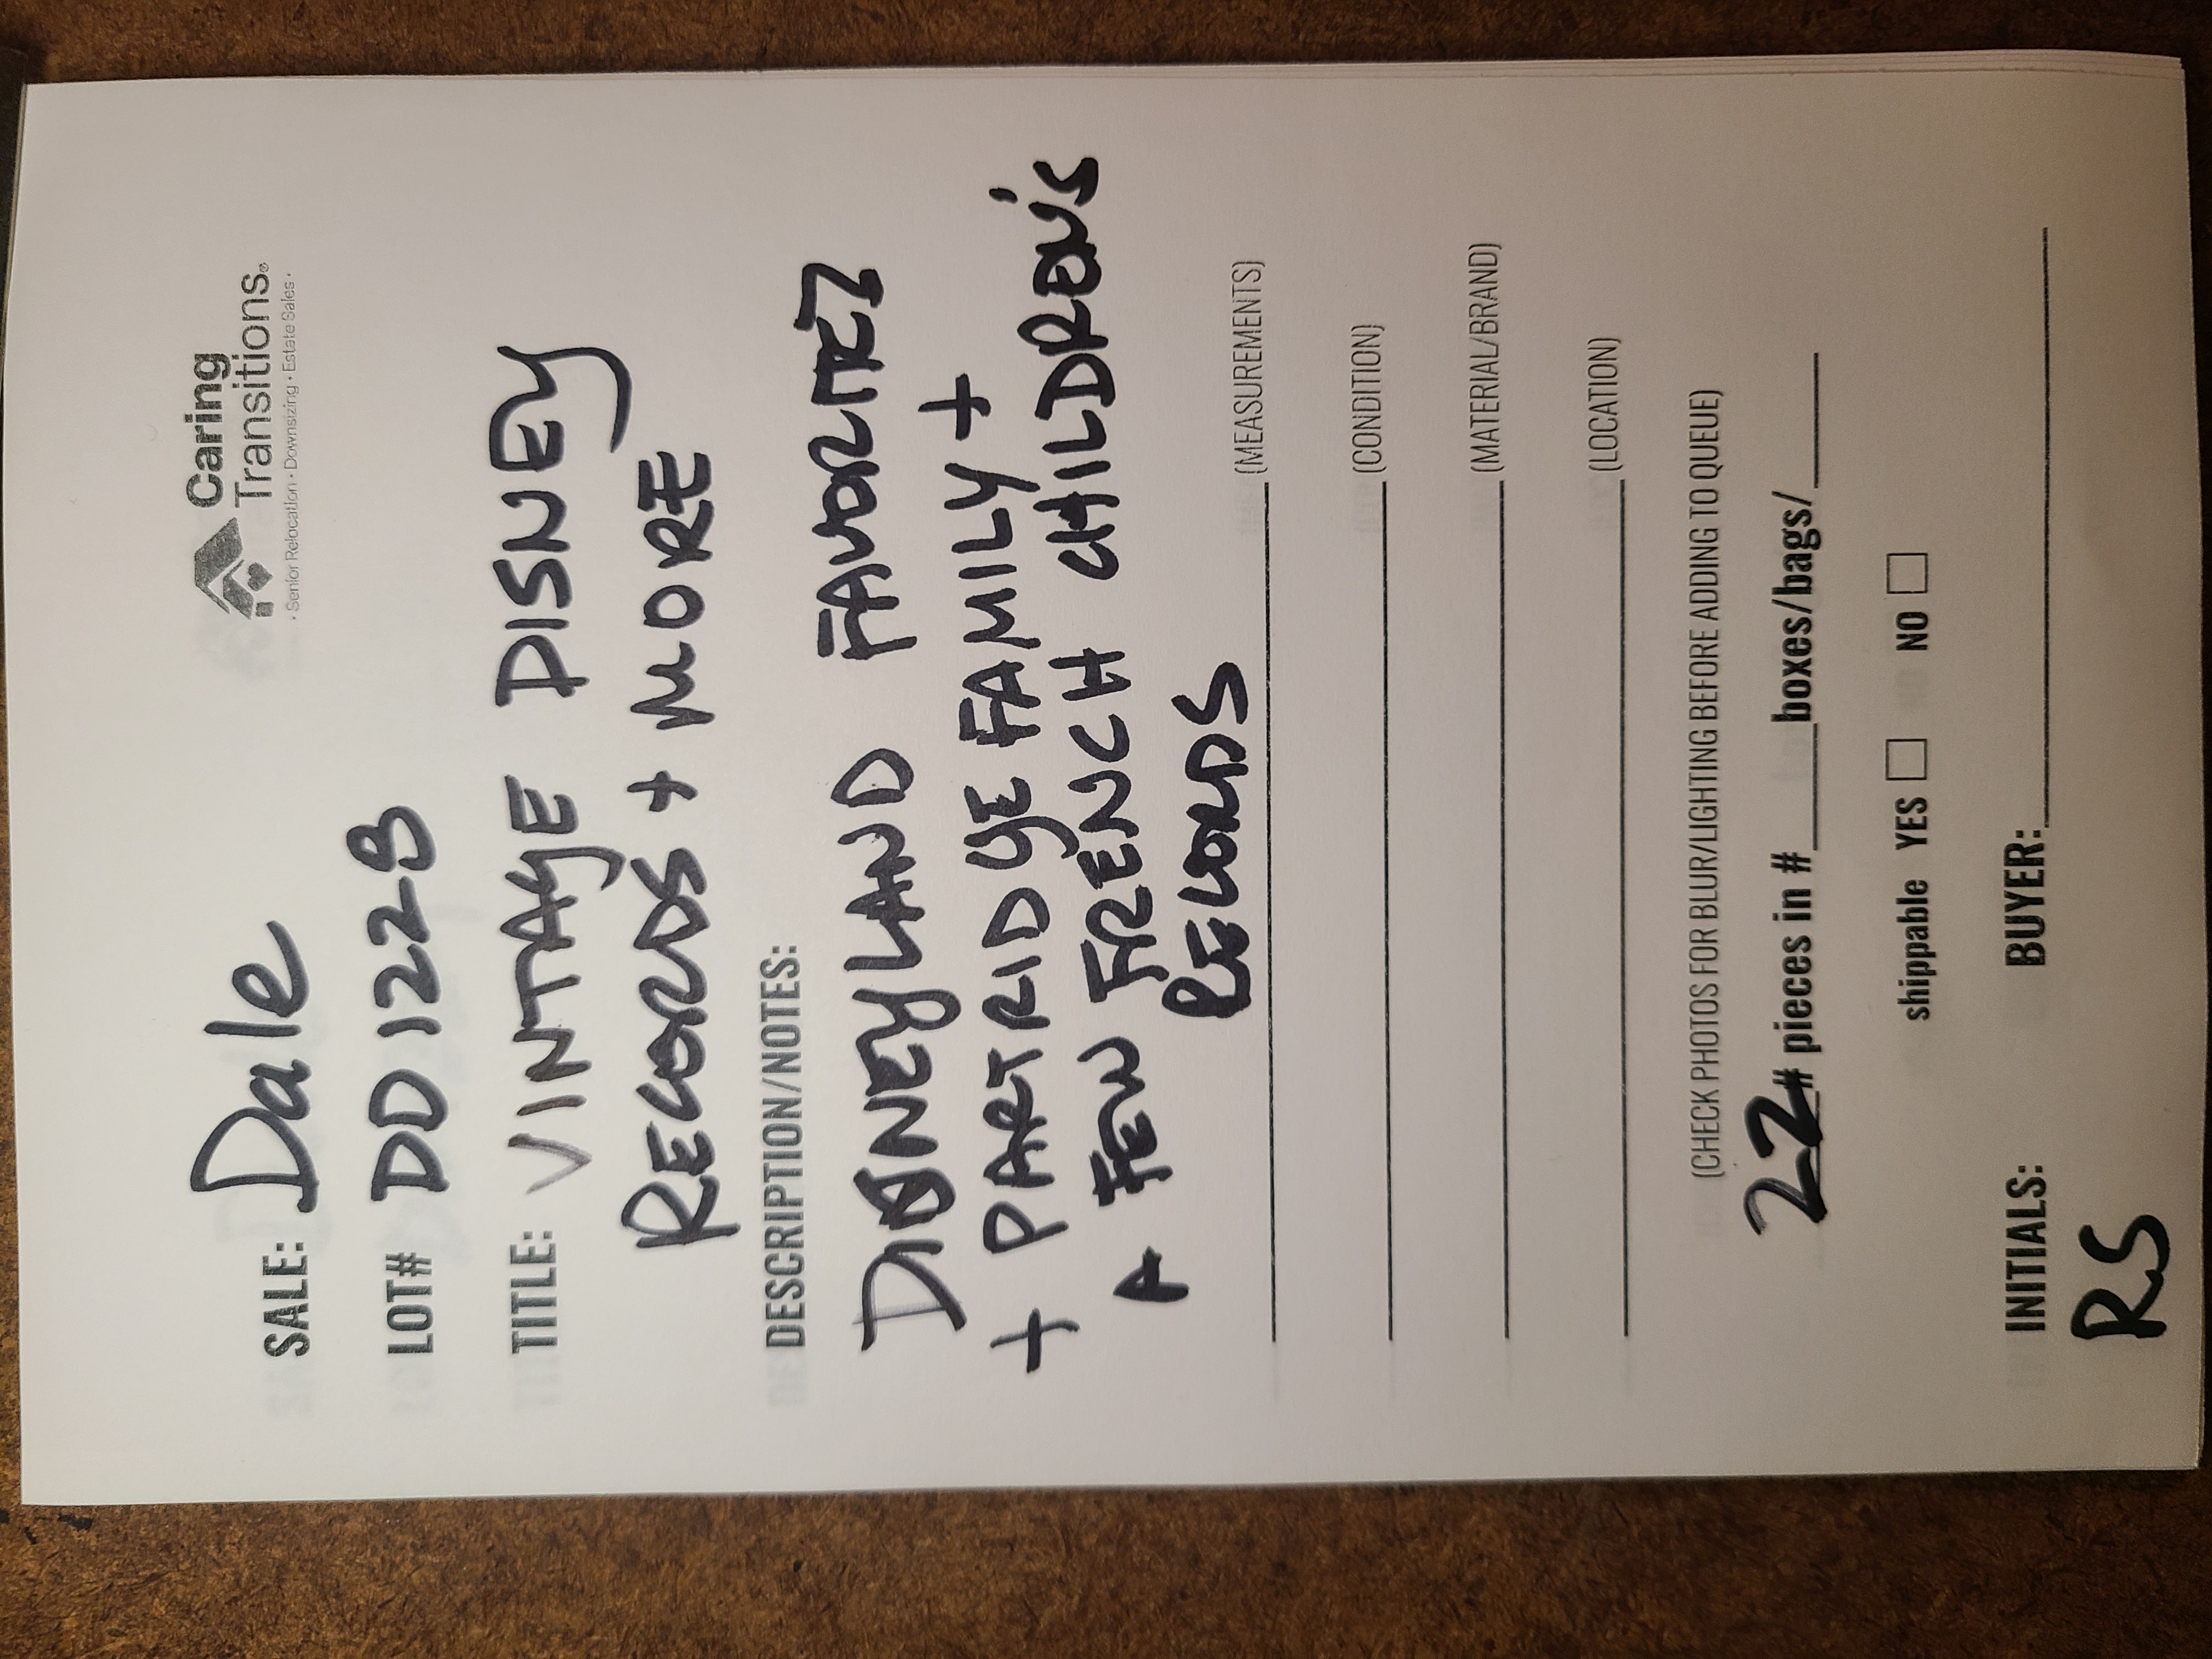 Caring
Transitions®
· Senior Relocation · Downsizing · Estate Sales ·
SALE: Dale
LOT# DD1228
TITLE: VINTAGE DISNEY
RECORDS + MORE
DESCRIPTION/NOTES:
DISNEYLAND FAVORITES
+ PARTRIDGE FAMILY +
A FEW FRENCH CHILDREN'S
RECORDS
(MEASUREMENTS)
(CONDITION)
(MATERIAL/BRAND)
(LOCATION)
(CHECK PHOTOS FOR BLUR/LIGHTING BEFORE ADDING TO QUEUE)
22 # pieces in #____boxes/bags/____
shippable YES □ NO □
INITIALS: BUYER:
RS